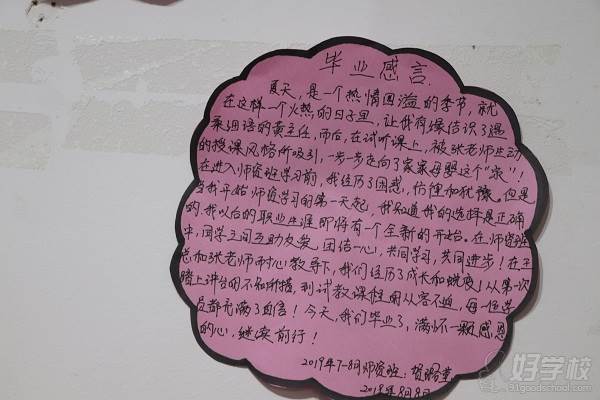 毕业感言
夏天,是一个热情回溢的季节,就
在这样一个火热的日子里,让我有缘结识了温
柔细语的黄主任,而后,在试听课上,被张老师生动
的授课风格所吸引,一步一步走向了家家母婴这个"家"!
在进入师资班学习前,我经历了困惑,彷徨和犹豫。但是
当我开始师资学习的第一天起,我知道我的选择是正确
的,我以后的职业生涯即将有一个全新的开始。在师资班
中,同学之间互助友爱,团结一心,共同学习,共同进步!在王
总和张老师耐心教导下,我们经历了成长和蜕变!从第一次
踏上讲台的不知所措,到试教课程的从容不迫,每一位学
员都充满了自信!今天,我们毕业了,满怀一颗感恩
的心,继续前行!
2019年7-8月师资班:
2019年8月8日
好学校
91goodschool.com